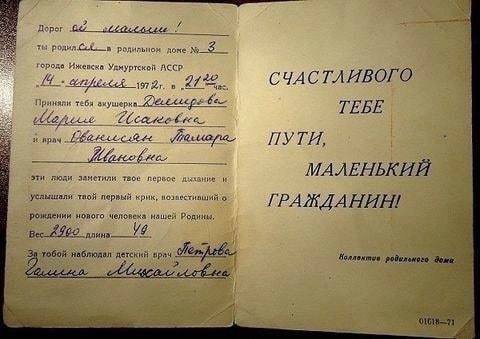 Дорог ой малыш!
ты родился в родильном доме № 3
города Ижевска Удмуртской АССР
"14" апреля 1972г. в 21 20 час.
Приняли тебя акушерка Демидова
Мария Исаковна
и врач Ованисян Тамара
Ивановна
эти люди заметили твое первое дыхание и
услышали твой первый крик, возвестивший о
рождении нового человека нашей Родины.
Вес 2900 длина 49
За тобой наблюдал детский врач Петрова
Галина Михайловна
СЧАСТЛИВОГО
ТЕБЕ
ПУТИ,
МАЛЕНЬКИЙ
ГРАЖДАНИН!
Коллектив родильного дома
01618—71